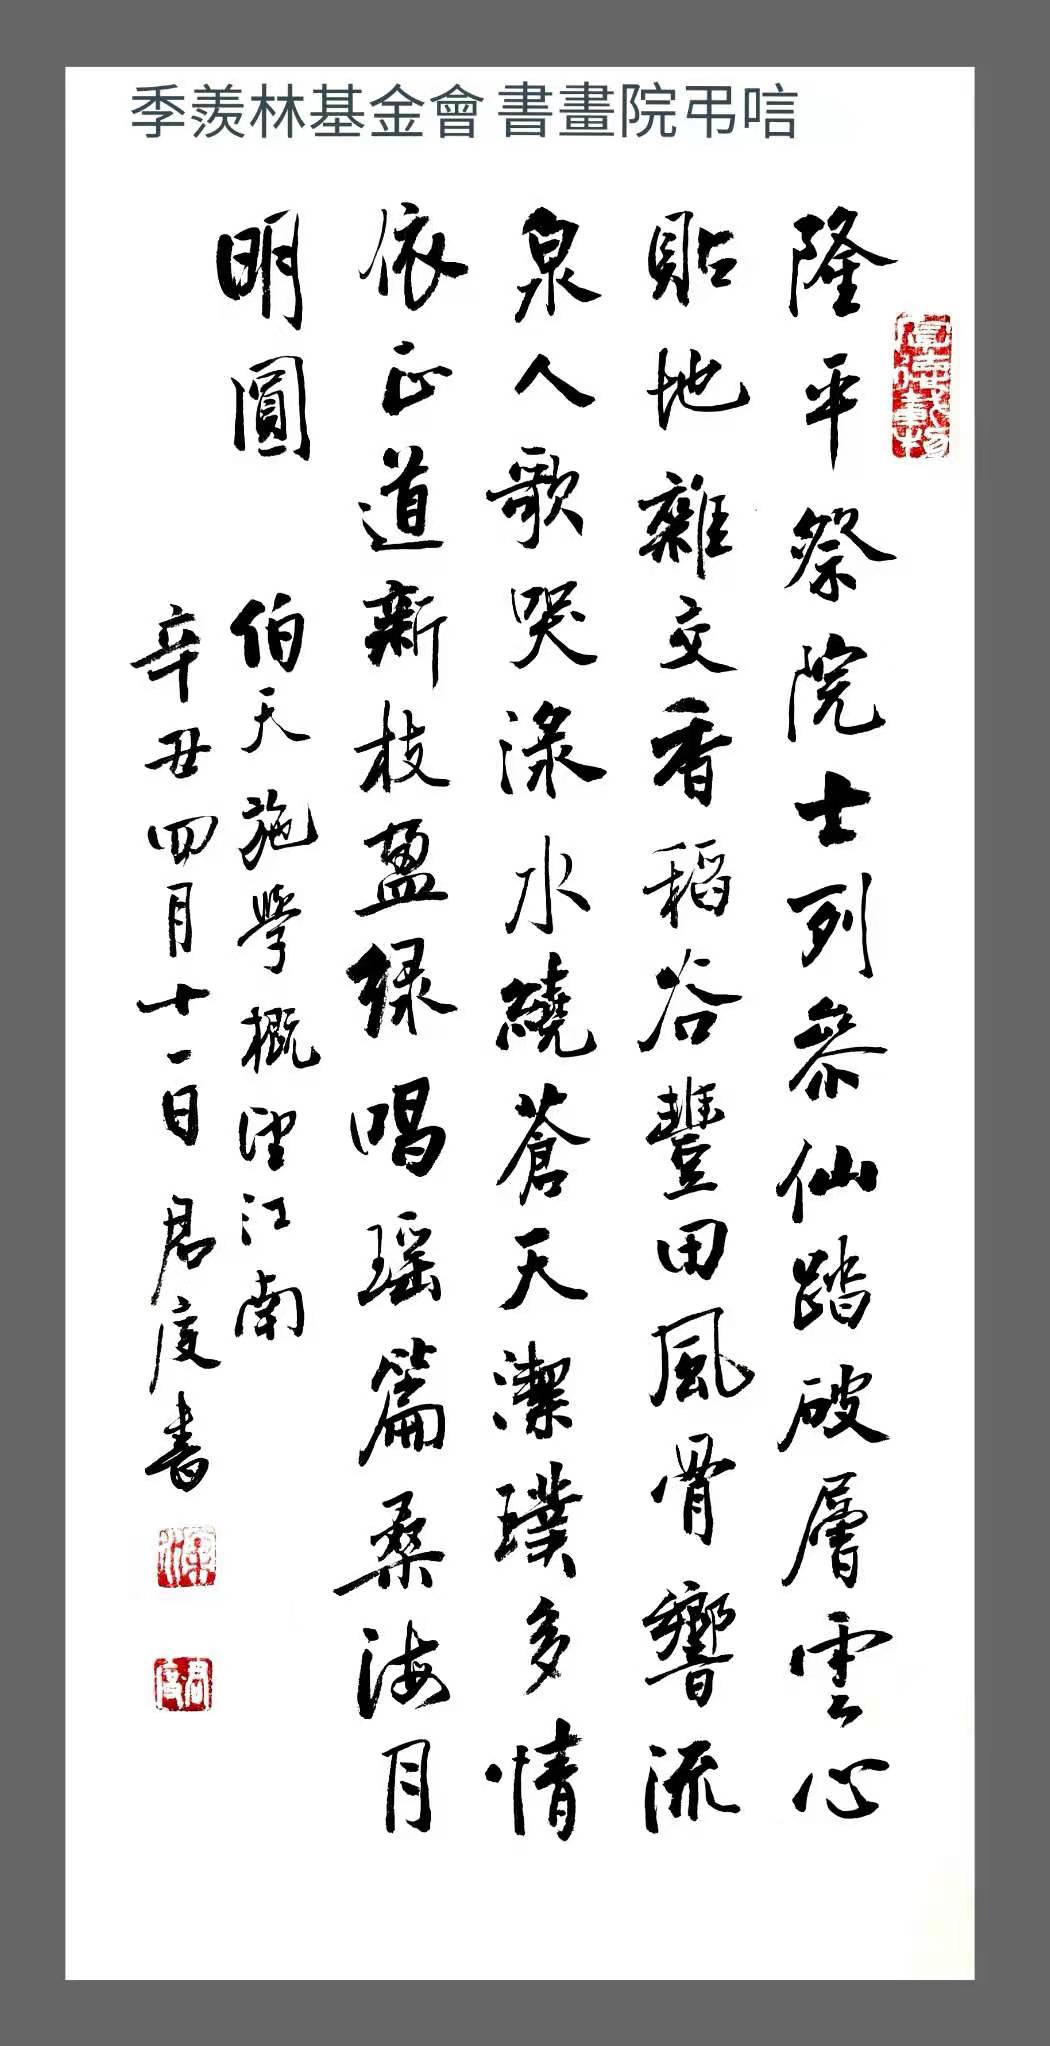 季羨林基金會 書畫院弔唁
隆平祭院士列參仙踏破層雲心
貼地雜交香稻谷豐田風骨響流
泉人歌哭淥水繞蒼天潔璞多情
依正道新枝盈绿唱瑶篇桑海月
明圓
伯天施學概望江南
辛丑四月十一日君度書
厚德載物
君度